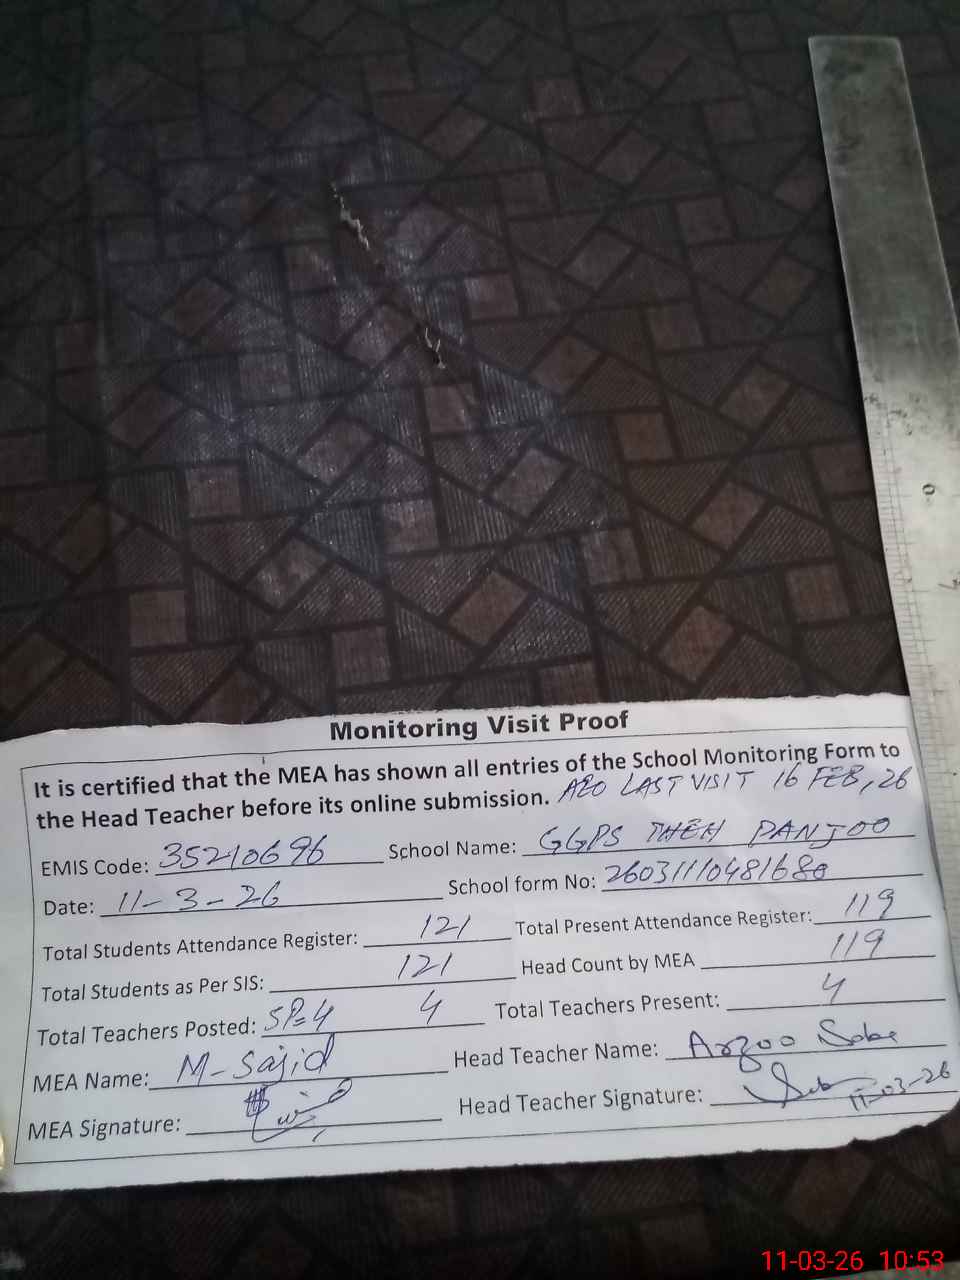 Monitoring Visit Proof
It is certified that the MEA has shown all entries of the School Monitoring Form to
the Head Teacher before its online submission. AEO LAST VISIT 16 FEB, 26
EMIS Code: 35210696 School Name: GGPS THEH PANJOO
Date: 11-3-26 School form No: 26031110481680
Total Students Attendance Register: 121 Total Present Attendance Register: 119
Total Students as Per SIS: 121 Head Count by MEA 119
Total Teachers Posted: SP=4 4 Total Teachers Present: 4
MEA Name: M-Sajid Head Teacher Name: Arzoo Saba
MEA Signature: Head Teacher Signature: 11-03-26
11-03-26 10:53